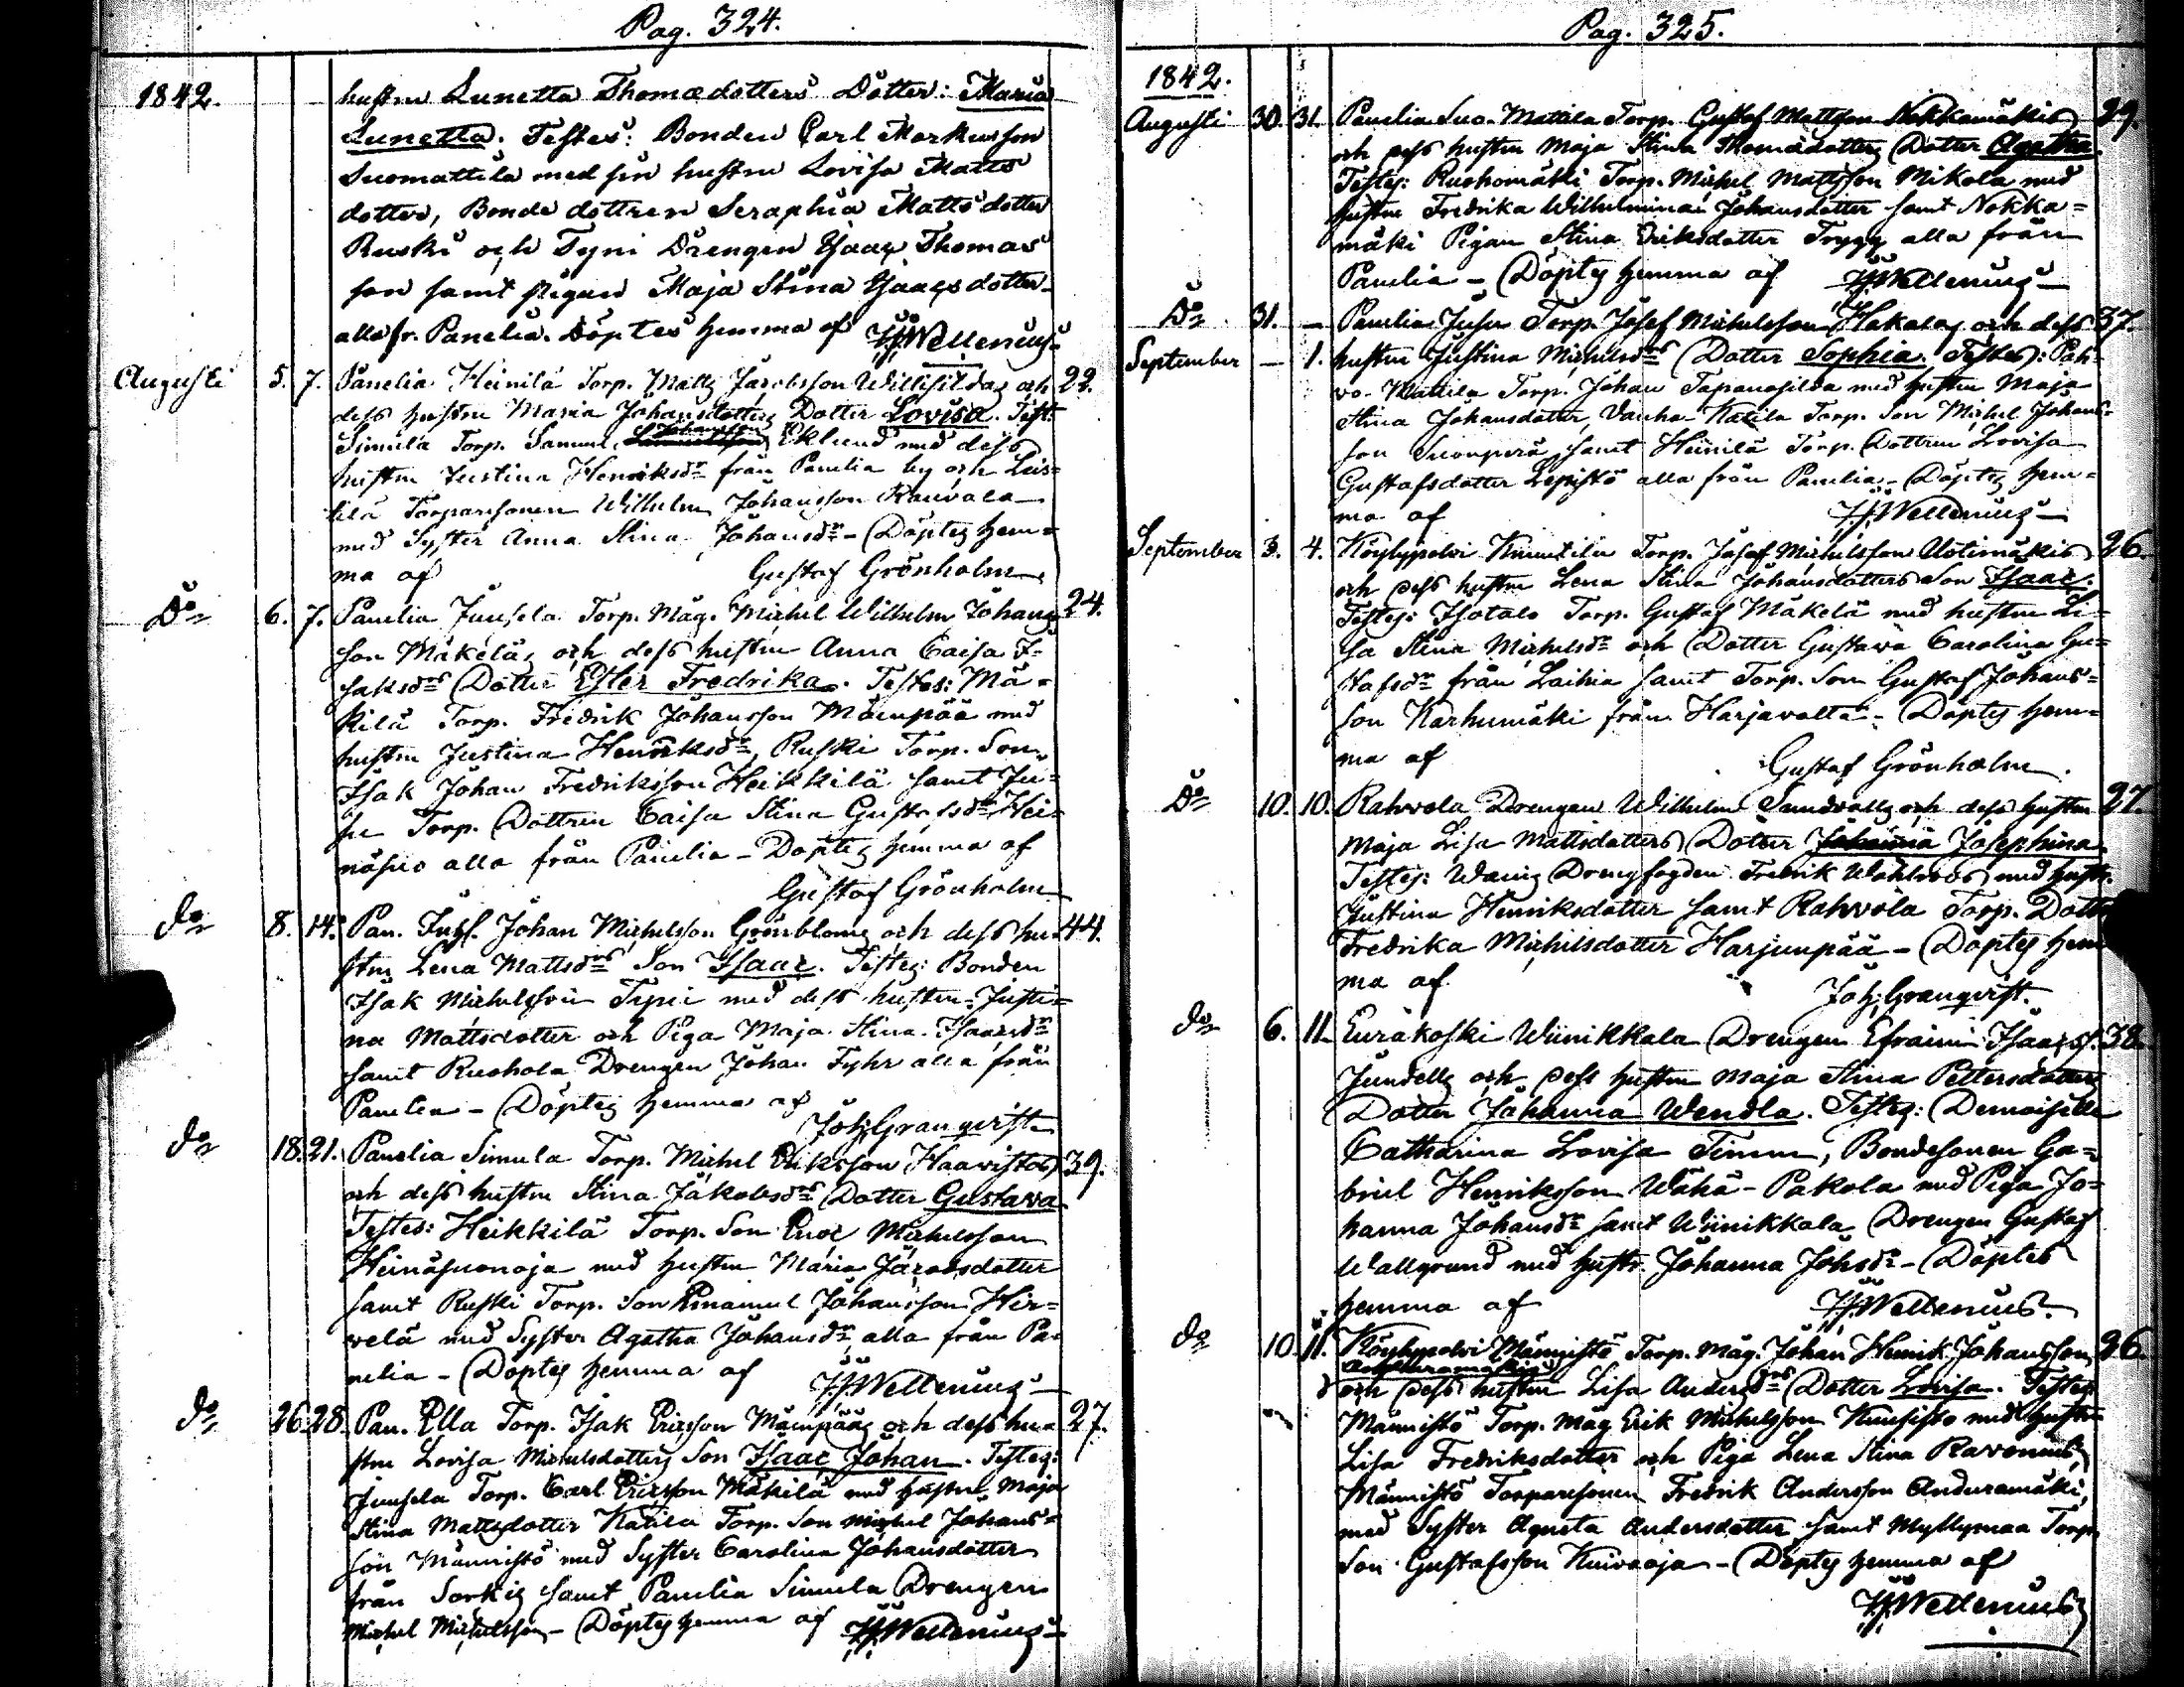 Pag. 324.
1842. hustru Lunetta Thomædotters Dotter: Maria
Lunetta. Testes: Bonden Carl Markusson
Suomattila med sin hustru Lovisa Matts
dotter, Bonde dottren Seraphia Matts dotter
Ruski och Tyni Drengen Isaac Thomas
son samt pigan Maja Stina Isaacs dotter
alla fr. Panelia. Döptes hemma af Wellenius
Augusti 5. 7. Panelia Heinilä Torp. Matts Jacobsson och 22.
dess hustru Maria Johansdotters Dotter Lovisa. Test:
Simula Torp. Samuel Johansson Eklund med dess
hustru Justina Henriksdr från Panelia by och Leis-
tilä Torparesonen Wilhelm Johansson
med Syster Anna Stina Johansdr - Döptes hem-
ma af Gustaf Grönholm
Do 6. 7. Panelia Juusela Torp. Måg. Michel Wilhelm Johans 24.
son Mäkeläs och dess hustru Anna Caisa I-
saksdrs Dotter Ester Fredrika. Testes: Mä-
kilä Torp. Fredrik Johansson Mäenpää med
hustru Justina Henriksdr, Ruski Torp. Son
Isak Johan Fredriksson Heikkilä samt Ju-
se Torp. Dottren Caisa Stina Gustafsdr Hei-
näsuo alla från Panelia - Döptes hemma af
Gustaf Grönholm
do 8. 14. Pan. Inhs. Johan Michelsson Grönbloms och dess hu- 44.
stru Lena Mattsdrs Son Isaac. Testes: Bonden
Isak Michelsson med dess hustru Justi-
na Mattsdotter och Piga Maja Stina Isaacsdr
samt Ruohola Drengen Johan Fyhr alla från
Panelia - Döptes hemma af
Joh: Granqvist
do 18. 21. Panelia Simula Torp. Michel Eriksson Haavistos 39.
och dess hustru Stina Jakobsdrs Dotter Gustava
Testes: Heikkilä Torp. Son Eric Michelsson
Heinäsuonoja med hustru Maria Jacobsdotter
samt Ruski Torp. Son Emanuel Johansson Hir-
velä med Syster Agatha Johansdr alla från Pa-
nelia - Döptes hemma af Wellenius
do 26. 28. Pan. Ella Torp. Isak Ericsson Mäenpääs och dess hu- 27.
stru Lovisa Michelsdotters Son Isaac Johan. Testes:
Juusela Torp. Carl Ericsson Mäkilä med hustru Maja
Stina Mattsdotter Katila Torp. Son Michel Johans-
son Männistö med Syster Carolina Johansdotter
från Sorkis samt Panelia Simula Drengen
Michel Michelsson - Döptes hemma af Wellenius
Pag. 325.
1842.
Augusti 30. 31. Panelia Suo-Mattila Torp. Gustaf Mattsson Nokkamäkis 29.
och dess hustru Maja Stina Thomædotters Dotter Agatha.
Testes: Ruohomäki Torp. Michel Mattsson Mikola med
hustru Fredrika Wilhelmina Johansdotter samt Nokka-
mäki Pigan Stina Eriksdotter Trygg alla från
Panelia - Döptes hemma af Wellenius
Do 31. - Panelia Juse Torp. Josef Michelsson Hakalas och dess 37.
September - 1. hustru Justina Michelsdrs Dotter Sophia. Testes: Pah-
vo-Mattila Torp. Johan Tapanasilda med hustru Maja
Stina Johansdotter, Vanha-Katila Torp. Son Michel Johans-
son Suonperä, samt Heinilä Torp. Dottren Lovisa
Gustafsdotter Lepistö alla från Panelia - Döptes hem-
ma af Wellenius
September 3. 4. Köylypolvi Knuutila Torp. Josef Michelsson Uotimäkis 26.
och dess hustru Lena Stina Johansdotters Son Isaac.
Testes: Isotalo Torp. Gustaf Mäkelä med hustru Li-
sa Stina Michelsdr och Dotter Gustava Carolina Gu-
stafsdr från Laihia samt Torp. Son Gustaf Johans-
son Karhumäki från Harjavalta - Döptes hem-
ma af
Gustaf Grönholm.
Do 10. 10. Rahvola Drengen Wilhelm Sundvalls och dess hustru 27.
Maja Lisa Mattsdotters Dotter Johanna Josephina
Testes: Drengfogden Fredrik Wahlroos med hustr.
Justina Henriksdotter samt Rahvola Torp. Dott
Fredrika Michelsdotter Harjunpää - Döptes hem
ma af
Joh: Granqvist.
do 6. 11. Euräkoski Wiinikkala Drengen Efraim Isaacss. 38.
Jundells och dess hustru Maja Stina Pettersdotters
Dotter Johanna Wendla. Testes: Demoiselle
Catharina Lovisa Timm, Bondesonen Ga-
briel Henriksson Wähä-Pakola med Piga Jo-
hanna Johansdr samt Wiinikkala Drengen Gustaf
Wallgrund med hustr. Johanna Johsdr - Döptes
hemma af Wellenius.
do 10. 11. Köylypolvi Männistö Torp. Måg. Johan Henrik Johansson 26.
och dess hustru Lisa Andersdrs Dotter Lovisa. Testes
Männistö Torp. Måg Erik Michelsson Kuusisto med hustru
Lisa Fredriksdotter och Piga Lena Stina Ravenius,
Männistö Torparesonen Fredrik Andersson Anduramäki,
med Syster Agneta Andersdotter samt Myllymaa Torp.
Son Gustafsson Kuivaoja - Döptes hemma af
Wellenius